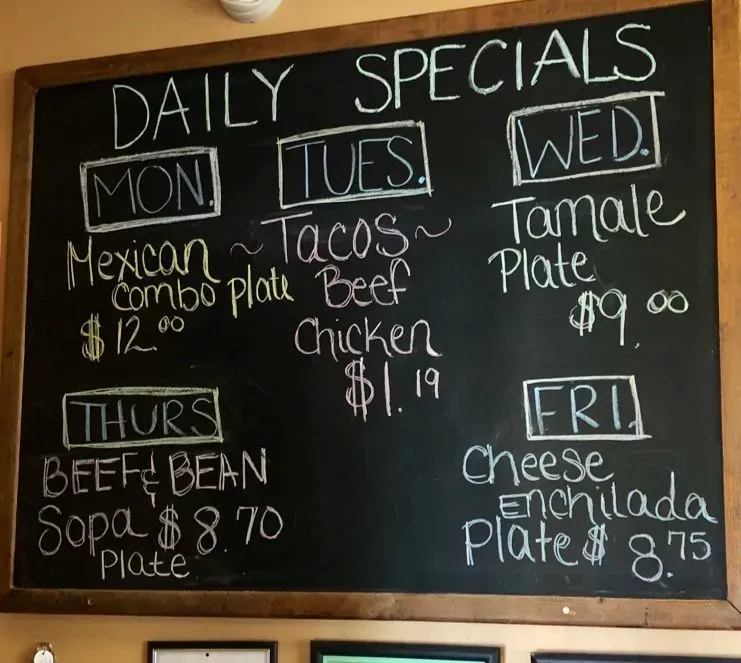 DAILY SPECIALS
MON.
Mexican
Combo Plate
$12.00
TUES.
~Tacos~
Beef
Chicken
$1.19
WED.
Tamale
Plate
$9.00
THURS
BEEF & BEAN
Sopa $8.70
Plate
FRI.
Cheese
Enchilada
Plate $8.75